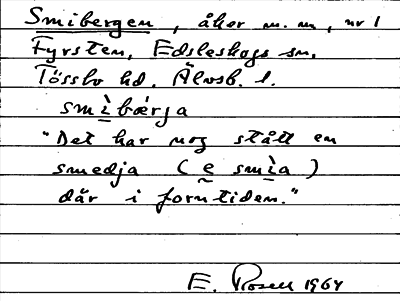 Smibergen, åker m. m, nr 1
Fyrsten, Edsleskogs sn.
Tössbo hd. Älvsb. l.
smìbæ̀rja
"Det har nog stått en
smedja (e smìa)
där i forntiden."
E. Rosell 1964